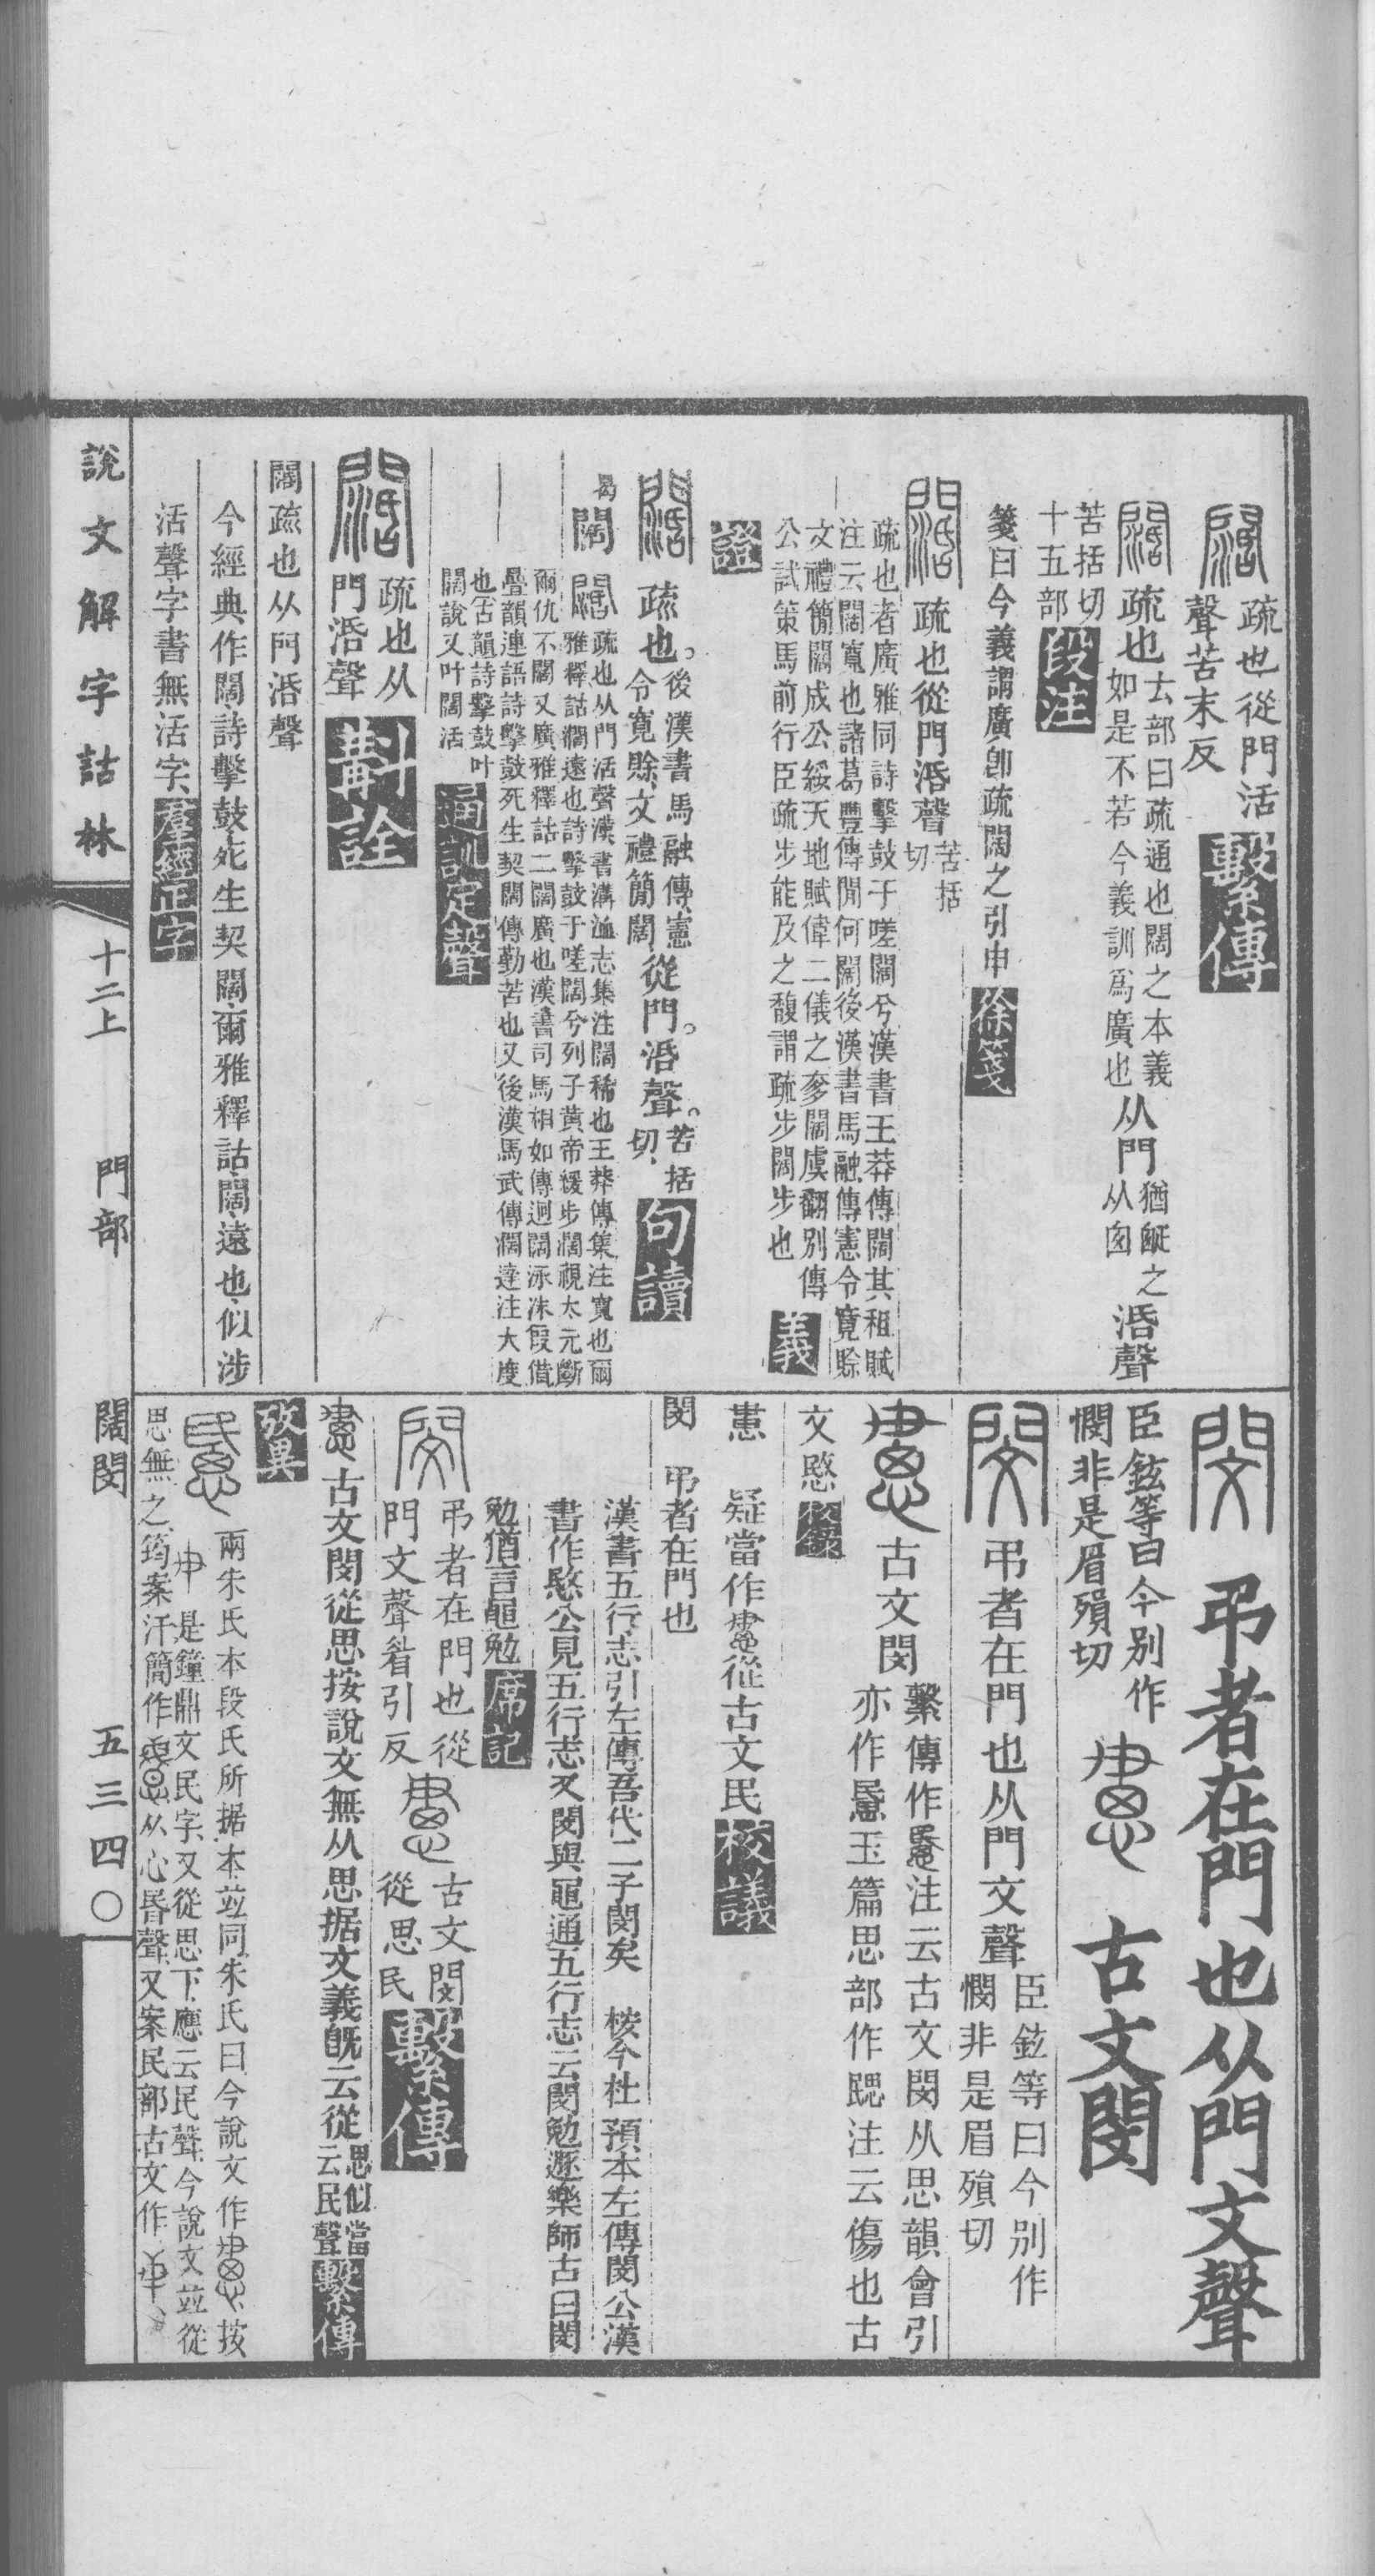 闊
疏也從門活
聲苦末反
繫傳
闊
疏也
𠫓部曰疏通也闊之本義
如是不若今義訓爲廣也
从門
猶𤕟之
从囪
𣴠聲
苦括切
十五部
段注
箋曰今義謂廣卽疏闊之引申
徐箋
闊
疏也從門𣴠聲
苦括
切
疏也者廣雅同詩擊鼓于嗟闊兮漢書王莽傳闊其租賦
注云闊寬也諸葛豐傳閒何闊後漢書馬融傳憲令寬賒
文禮簡闊成公綏天地賦偉二儀之參闊虞翻別傳
公試策馬前行臣疏步能及之馥謂疏步闊步也
義
證
闊
疏也。
後漢書馬融傳、憲
令寬賒、文禮簡闊、
從門。𣴠聲。
苦括
切、
句讀
曷
闊
闊
疏也从門活聲漢書溝洫志集注闊稀也王莽傳集注寬也爾
雅釋詁闊遠也詩擊鼓于嗟闊兮列子黃帝緩步闊視太元斷
爾仇不闊又廣雅釋詁二闊廣也漢書司馬相如傳迥闊泳沫叚借
疊韻連語詩擊鼓死生契闊傳勤苦也又後漢馬武傳闊達注大度
也古韻詩擊鼓叶
闊說又叶闊活
通訓定聲
闊
疏也从
門𣴠聲
斠詮
闊疏也从門𣴠聲
今經典作闊、詩擊鼓、死生契闊、爾雅釋詁、闊遠也、似涉
活聲字書無活字、
羣經正字
閔
弔者在門也从門文聲
臣鉉等曰今別作
憫非是眉殞切
古文閔
閔
弔者在門也从門文聲
臣鉉等曰今別作
憫非是眉殞切
古文閔
繫傳作注云古文閔从思韻會引
亦作玉篇思部作注云傷也古
文愍
校錄
疑當作從古文民
校議
閔
弔者在門也
漢書五行志引左傳吾代二子閔矣 桉今杜預本左傳閔公漢
書作愍公見五行志又閔與黽通五行志云閔勉遯樂師古曰閔
勉猶言黽勉
席記
閔
弔者在門也從
門文聲眉引反
古文閔
從思民
繫傳
古文閔從思按說文無从思据文義旣云從
思似當
云民聲
繫傳
攷異
兩朱氏本段氏所据本竝同朱氏曰今說文作按
是鐘鼎文民字、又從思下、應云民聲、今說文竝從
思無之、筠案汗簡作从心昬聲、又案民部古文作
說文解字詁林
十二上
門部
闊閔
五三四〇